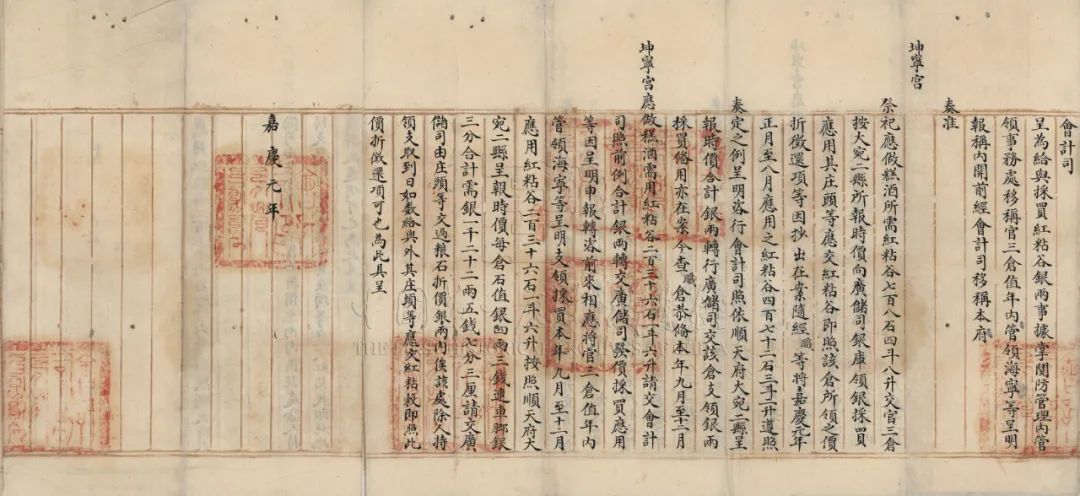 會計司
呈為給與採買紅粘谷銀兩事據掌關防管理內管
領事務處移稱官三倉值年內管領海寧等呈明
報稱內開前經會計司移稱本府
奏准
坤寧宮
祭祀應做糕酒所需紅粘谷七百八石四斗八升交官三倉
按大宛二縣所報時價向廣儲司銀庫領銀採買
應用其庄頭等應交紅粘谷即照該倉所領之價
折徵還項等因抄出在案隨經職等將嘉慶元年
正月至八月應用之紅粘谷四百七十二石三斗二升遵照
奏定之例呈明咨行會計司照依順天府大宛二縣呈
報時價合計銀兩轉行廣儲司交該倉支領銀兩
採買俻用亦在案今查職倉恭俻本年九月至十二月
坤寧宮應做糕酒需用紅粘谷二百三十六石一斗六升請交會計
司照前例合計銀兩轉交廣儲司發價採買應用
等因呈明申報轉咨前來相應將官三倉值年內
管領海寧等呈明支領採買本年九月至十二月
應用紅粘谷二百三十六石一斗六升按照順天府大
宛二縣呈報時價每倉石值銀四兩三錢連車脚銀
三分合計需銀一千二十二兩五錢七分三厘請交廣
儲司由庄頭等交過粮石折價銀兩內俟該處除人持
領支取到日如數給與外其庄頭等應交紅粘穀即照此
價折徵還項可也為此具呈
嘉慶元年